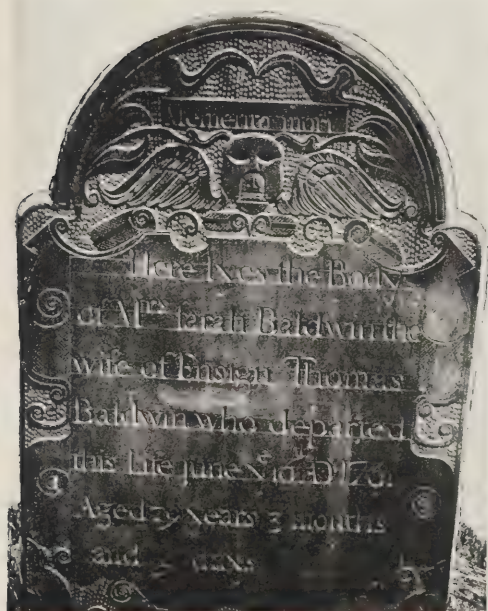 Memento mori
Here Lyes the Body
of Mrs Sarah Baldwin the
wife of Ensign Thomas
Baldwin who departed
this Life June
Aged years 3 months
and days